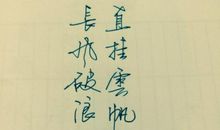 直挂雲帆
長风破浪